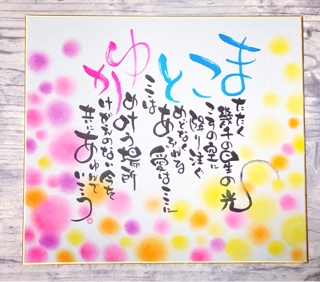 まこと
ゆか
またたく
幾千の星の光
こすの里に
降り注ぐ
めどなく
あふれる
愛はここに
ここは
めぐりあう場所
かけがえのない今を
共にあゆんで
いこう。